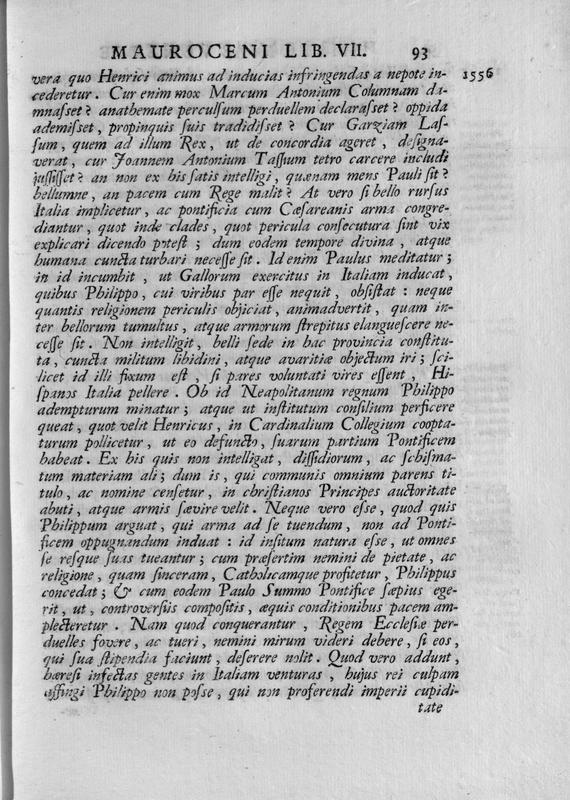 MAUROCENI LIB. VII. 93
vera quo Henrici animus ad inducias infringendas a nepote in- 1556
cederetur. Cur enim mox Marcum Antonium Columnam da-
mnasset? anathemate perculsum perduellem declarasset? oppida
ademisset, propinquis suis tradidisset? Cur Garziam Las-
sum, quem ad illum Rex, ut de concordia ageret, designa-
verat, cur Joannem Antonium Tassium tetro carcere includi
jussisset? an non ex his satis intelligi, quænam mens Pauli sit?
bellumne, an pacem cum Rege malit? At vero si bello rursus
Italia implicetur, ac pontificia cum Cæsareanis arma congre-
diantur, quot inde clades, quot pericula consecutura sint vix
explicari dicendo potest; dum eodem tempore divina, atque
humana cuncta turbari necesse sit. Id enim Paulus meditatur;
in id incumbit, ut Gallorum exercitus in Italiam inducat,
quibus Philippo, cui viribus par esse nequit, obsistat: neque
quantis religionem periculis objiciat, animadvertit, quam in-
ter bellorum tumultus, atque armorum strepitus elanguescere ne-
cesse sit. Non intelligit, belli sede in hac provincia constitu-
ta, cuncta militum libidini, atque avaritiæ objectum iri; sci-
licet id illi fixum est, si pares voluntati vires essent, Hi-
spanos Italia pellere. Ob id Neapolitanum regnum Philippo
adempturum minatur; atque ut institutum consilium perficere
queat, quot velit Henricus, in Cardinalium Collegium coopta-
turum pollicetur, ut eo defuncto, suarum partium Pontificem
habeat. Ex his quis non intelligat, dissidiorum, ac schisma-
tum materiam ali; dum is, qui communis omnium parens ti-
tulo, ac nomine censetur, in christianos Principes auctoritate
abuti, atque armis sævire velit. Neque vero esse, quod quis
Philippum arguat, qui arma ad se tuendum, non ad Ponti-
ficem oppugnandum induat: id insitum natura esse, ut omnes
se resque suas tueantur; cum præsertim nemini de pietate, ac
religione, quam sinceram, Catholicamque profitetur, Philippus
concedat; & cum eodem Paulo Summo Pontifice sæpius ege-
rit, ut, controversiis compositis, æquis conditionibus pacem am-
plecteretur. Nam quod conquerantur, Regem Ecclesiæ per-
duelles fovere, ac tueri, nemini mirum videri debere, si eos,
qui sua stipendia faciunt, deserere nolit. Quod vero addunt,
hæresi infectas gentes in Italiam venturas, hujus rei culpam
affingi Philippo non posse, qui non proferendi imperii cupidi-
tate